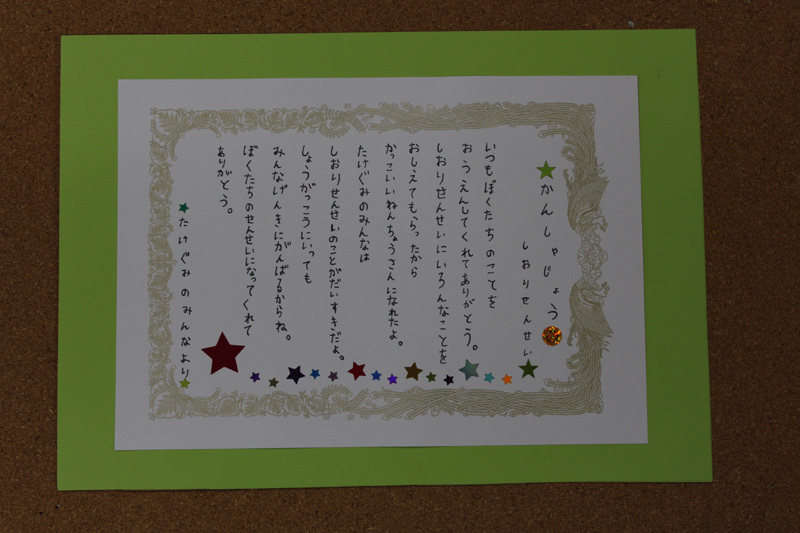 かんしゃじょう
しおりせんせい
いつもぼくたちのことを
おうえんしてくれてありがとう。
しおりせんせいにいろんなことを
おしえてもらったから
かっこいいねんちょうさんになれたよ。
たけぐみのみんなは
しおりせんせいのことがだいすきだよ。
しょうがっこうにいっても
みんなげんきにがんばるからね。
ぼくたちのせんせいになってくれて
ありがとう。
たけぐみのみんなより